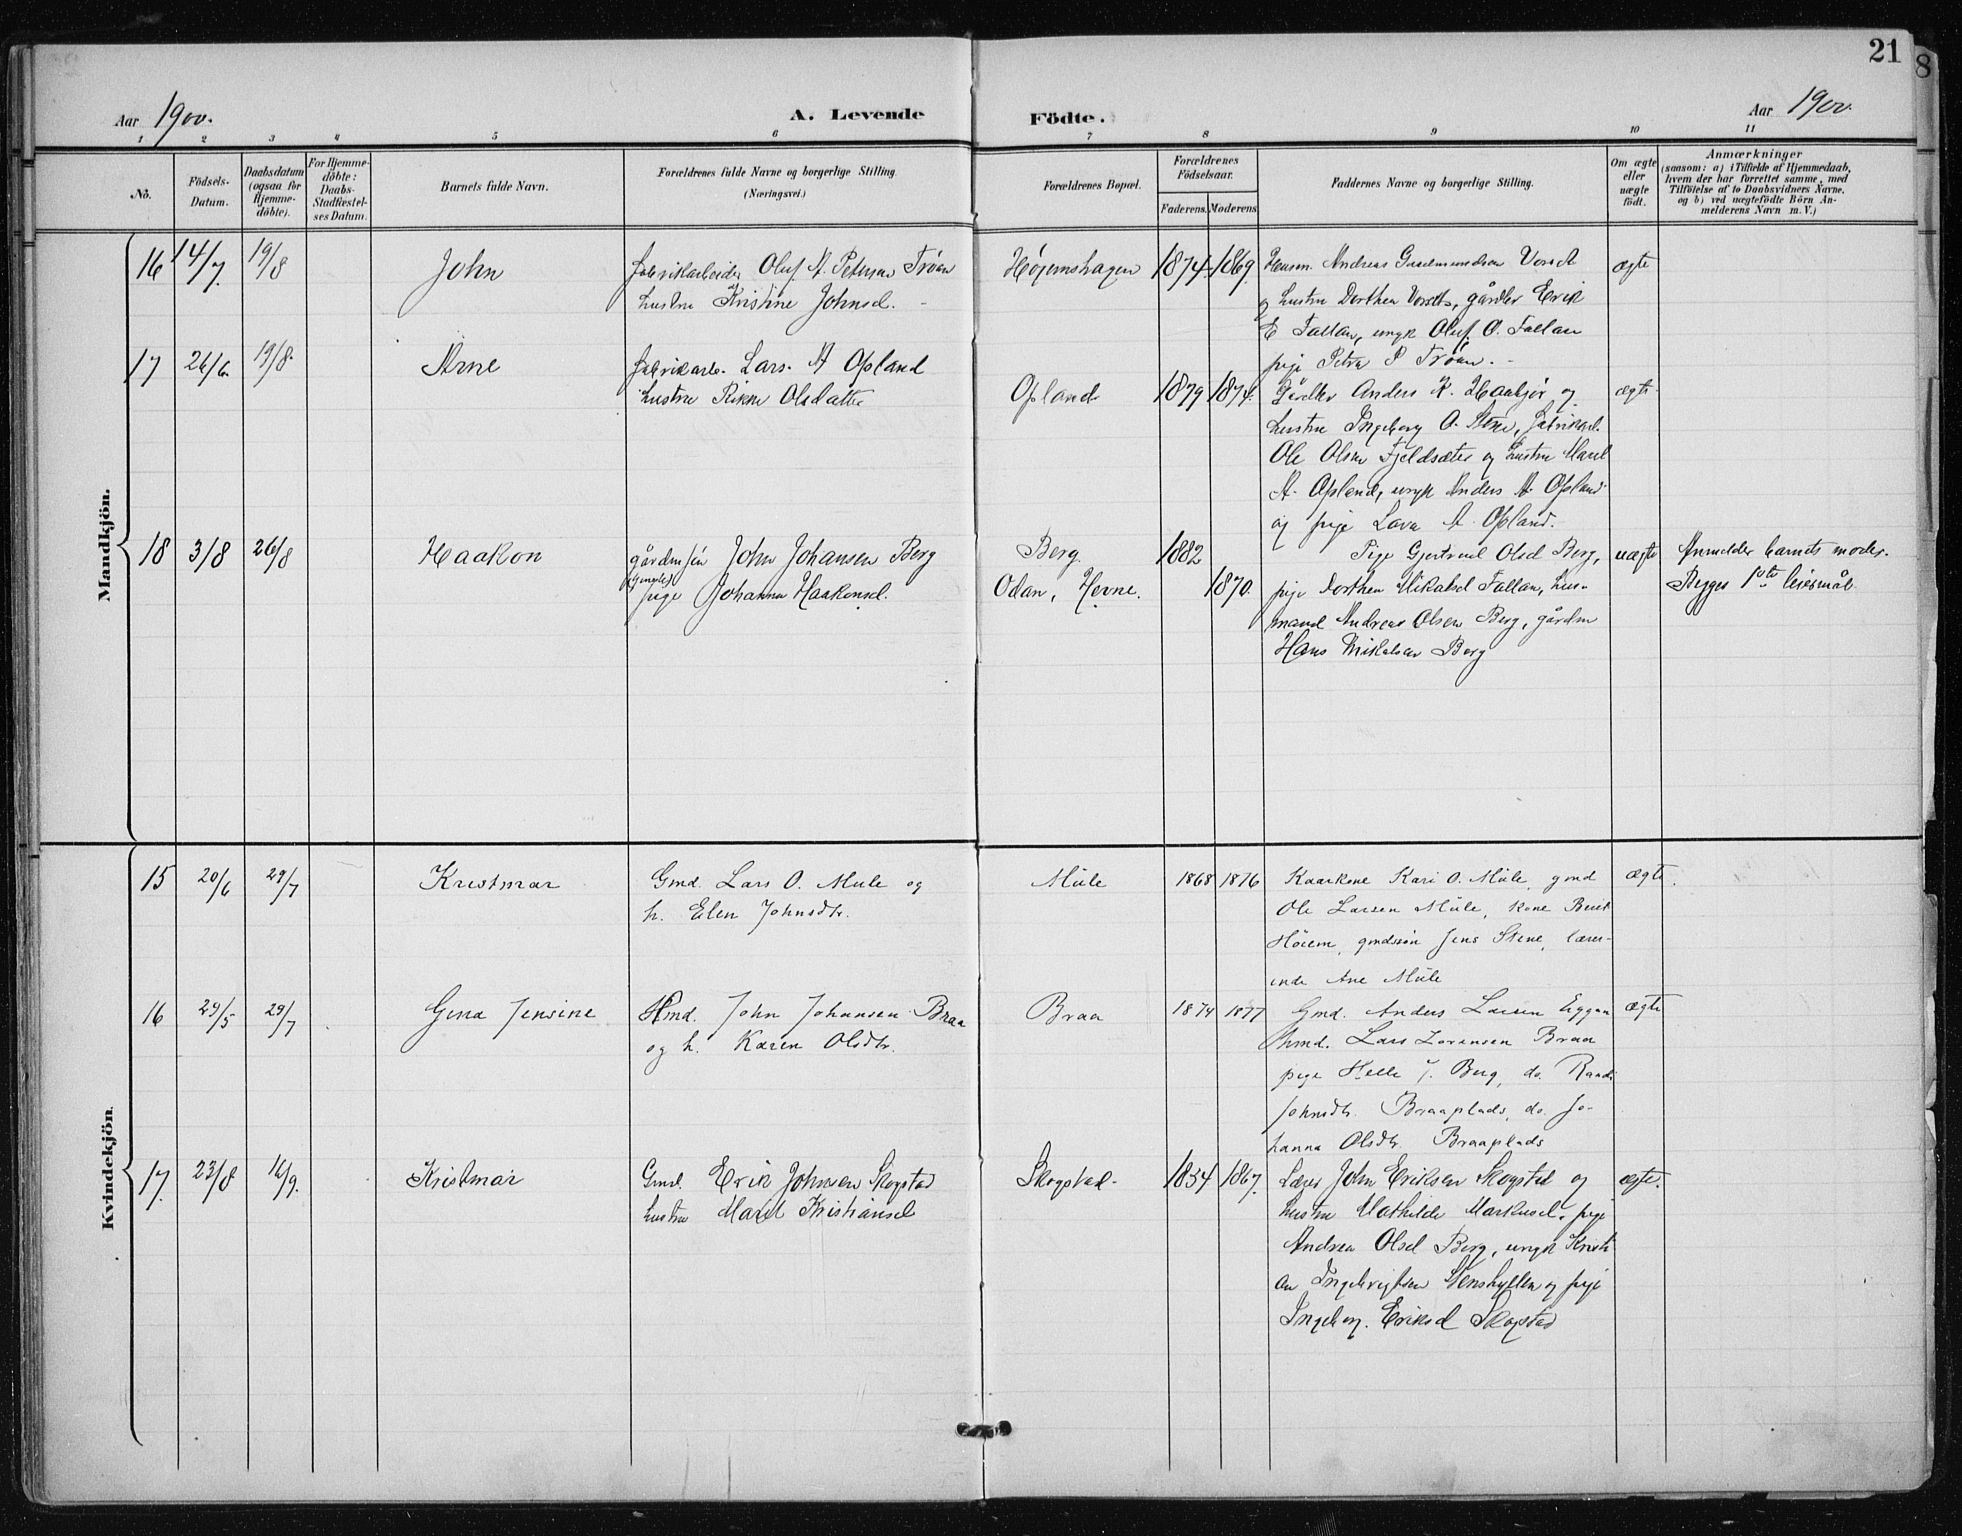 21
8
Aar 1900.
A. Levende
Födte.
Aar 1900.
1 2 3 4 5 6 7 8 9 10 11
No.
Födsels-
Datum.
Daabsdatum
(ogsaa for
Hjemme-
döbte).
For Hjemme-
döbte:
Daabs-
Stadfæstel-
ses Datum.
Barnets fulde Navn.
Forældrenes fulde Navne og borgerlige Stilling.
(Næringsvei.)
Forældrenes Bopæl.
Forældrenes
Födselsaar.
Faderens. Moderens.
Faddernes Navne og borgerlige Stilling.
Om ægte
eller
uægte
födt.
Anmærkninger
(saasom: a) i Tilfælde af Hjemmedaab,
hvem der har forrettet samme, med
Tilföielse af to Daabsvidners Navne,
og b) ved uægtefödte Börn An-
melderens Navn m. V.)
Mandkjön.
16 14/7. 19/8 John
fabrikarbeider Oluf A. Petersen Trøan
hustru Kristine Johnsd.
Højemshagen 1874 1869.
Husm. Andreas Gudmundsen Vorset
og hustru Dorthea Vorset, gårdbr Erik
E Fallan, ungk Oluf O. Fallan
pige Petra P Trøan.
ægte
17 26/6. 19/8. Arne
fabrikarb. Lars A Opland
hustru Olsdatter
Opland 1879 1874.
Anders K. og
hustru Ingeborg O. Stene, fabrikarb.
Ole Olsen Fjeldsæter og hustru Maret
A. Opland, ungk Anders A Opland
og pige Lava A. Opland.
ægte
18 3/8 26/8 Haakon
gårdm søn John Johansen Berg
pige Johanna Haakensd.
Berg.
Odan, Hevne.
1882
1870.
Pige Gjertrud Olsd Berg,
pige Dorthea Mikalsd Fallan, hus-
mand Andreas Olsen Berg, gårdm
Hans Mikalsen Berg
uægte
Anmelder barnets moder.
Begges 1ste leiermål.
Kvindekjön.
15 20/6 29/7 Kristmar
Gmd. Lars O. Mule og
h. Elen Johnsdtr.
Mule 1868 1876
Kaarkone Kari O. Mule, gmd
Ole Larsen Mule, kone Berit
Höiem, gmdssön Jens Stene, lærer-
inde Ane Mule
ægte.
16 29/5 29/7 Gina Jensine
Hmd. John Johansen Braa
og h. Karen Olsdtr.
Braa 1874 1877
Gmd. Anders Larsen Eggan
hmd. Lars Lorensen Braa
pige Helle J. Berg, do. Randi
Johnsdtr. Braaplads, do. Jo-
hanna Olsdtr. Braaplads
ægte
17 23/8 16/9. Kristmar
Gmd. Erik Johnsen Skogstad
hustru Maret Kristiansd
Skogstad 1854 1867.
Lærer John Eriksen Skogstad og
hustru Mathilde Markusd, pige
Andrea Olsd Berg, ungk Kristi
an Ingebrigtsen Stenshyllen og pige
Ingeborg Eriksd Skogstad
ægte.